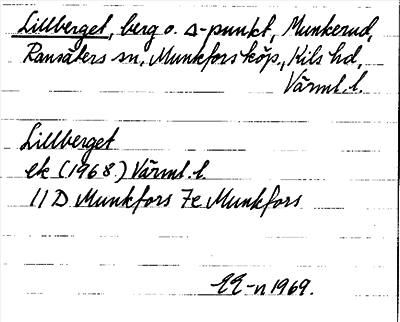 Lillberget, berg o. Δ-punkt, Munkerud,
Ransäters sn, Munkfors köp., Kils hd,
Värml. l.
Lillberget
ek (1968) Värml. l.
11D Munkfors 7e Munkfors
EE-n 1969.